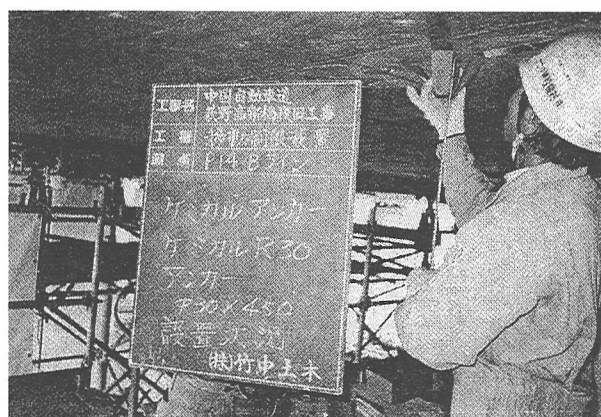 工事名
中国自動車道
武野高架橋復旧工事
工種
測点
P14 Bライン
ケミカルアンカー
ケミカルR30
アンカー
φ30×450
設置状況
(株)竹中土木